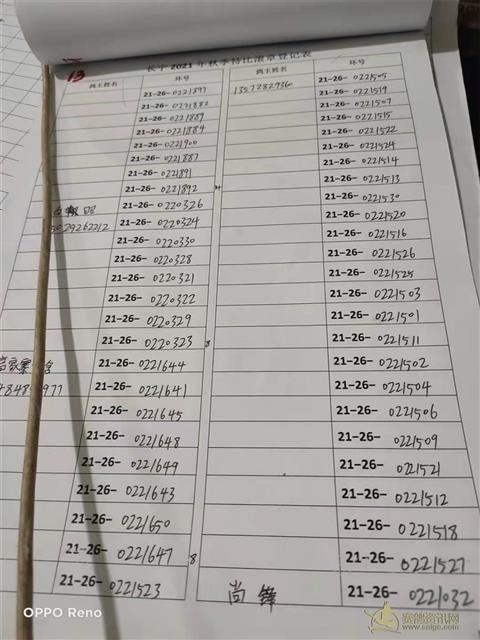 13
长宁2021年秋季特比滚章登记表
鸽主姓名 环号
21-26-0221897
21-26-0221882
21-26-0221889
21-26-0221884
21-26-0221900
21-26-0221887
21-26-021891
21-26-0221892
21-26-0220326
21-26-0220324
21-26-0220330
21-26-0220328
21-26-0220321
21-26-0220322
21-26-0220329
21-26-0220323 8
21-26-0221644
21-26-0221641
21-26-0221645
21-26-0221648
21-26-0221649
21-26-0221643
21-26-0221650
21-26-0221647 8
21-26-0221523
鸽主姓名 环号
21-26-0221505
1357282936 21-26-0221519
21-26-0221507
21-26-0221515
21-26-0221522
21-26-0221524
21-26-0221514
21-26-0221513
21-26-0221530
21-26-0221520
21-26-0221516
21-26-0221526
21-26-0221525
21-26-0221503
21-26-0221501
21-26-0221511
21-26-0221502
21-26-0221504
21-26-0221506
21-26-0221509
21-26-0221521
21-26-0221512
21-26-0221518
21-26-0221527
尚锋 21-26-0221032
OPPO Reno
赛鸽资讯网
www.saige.com